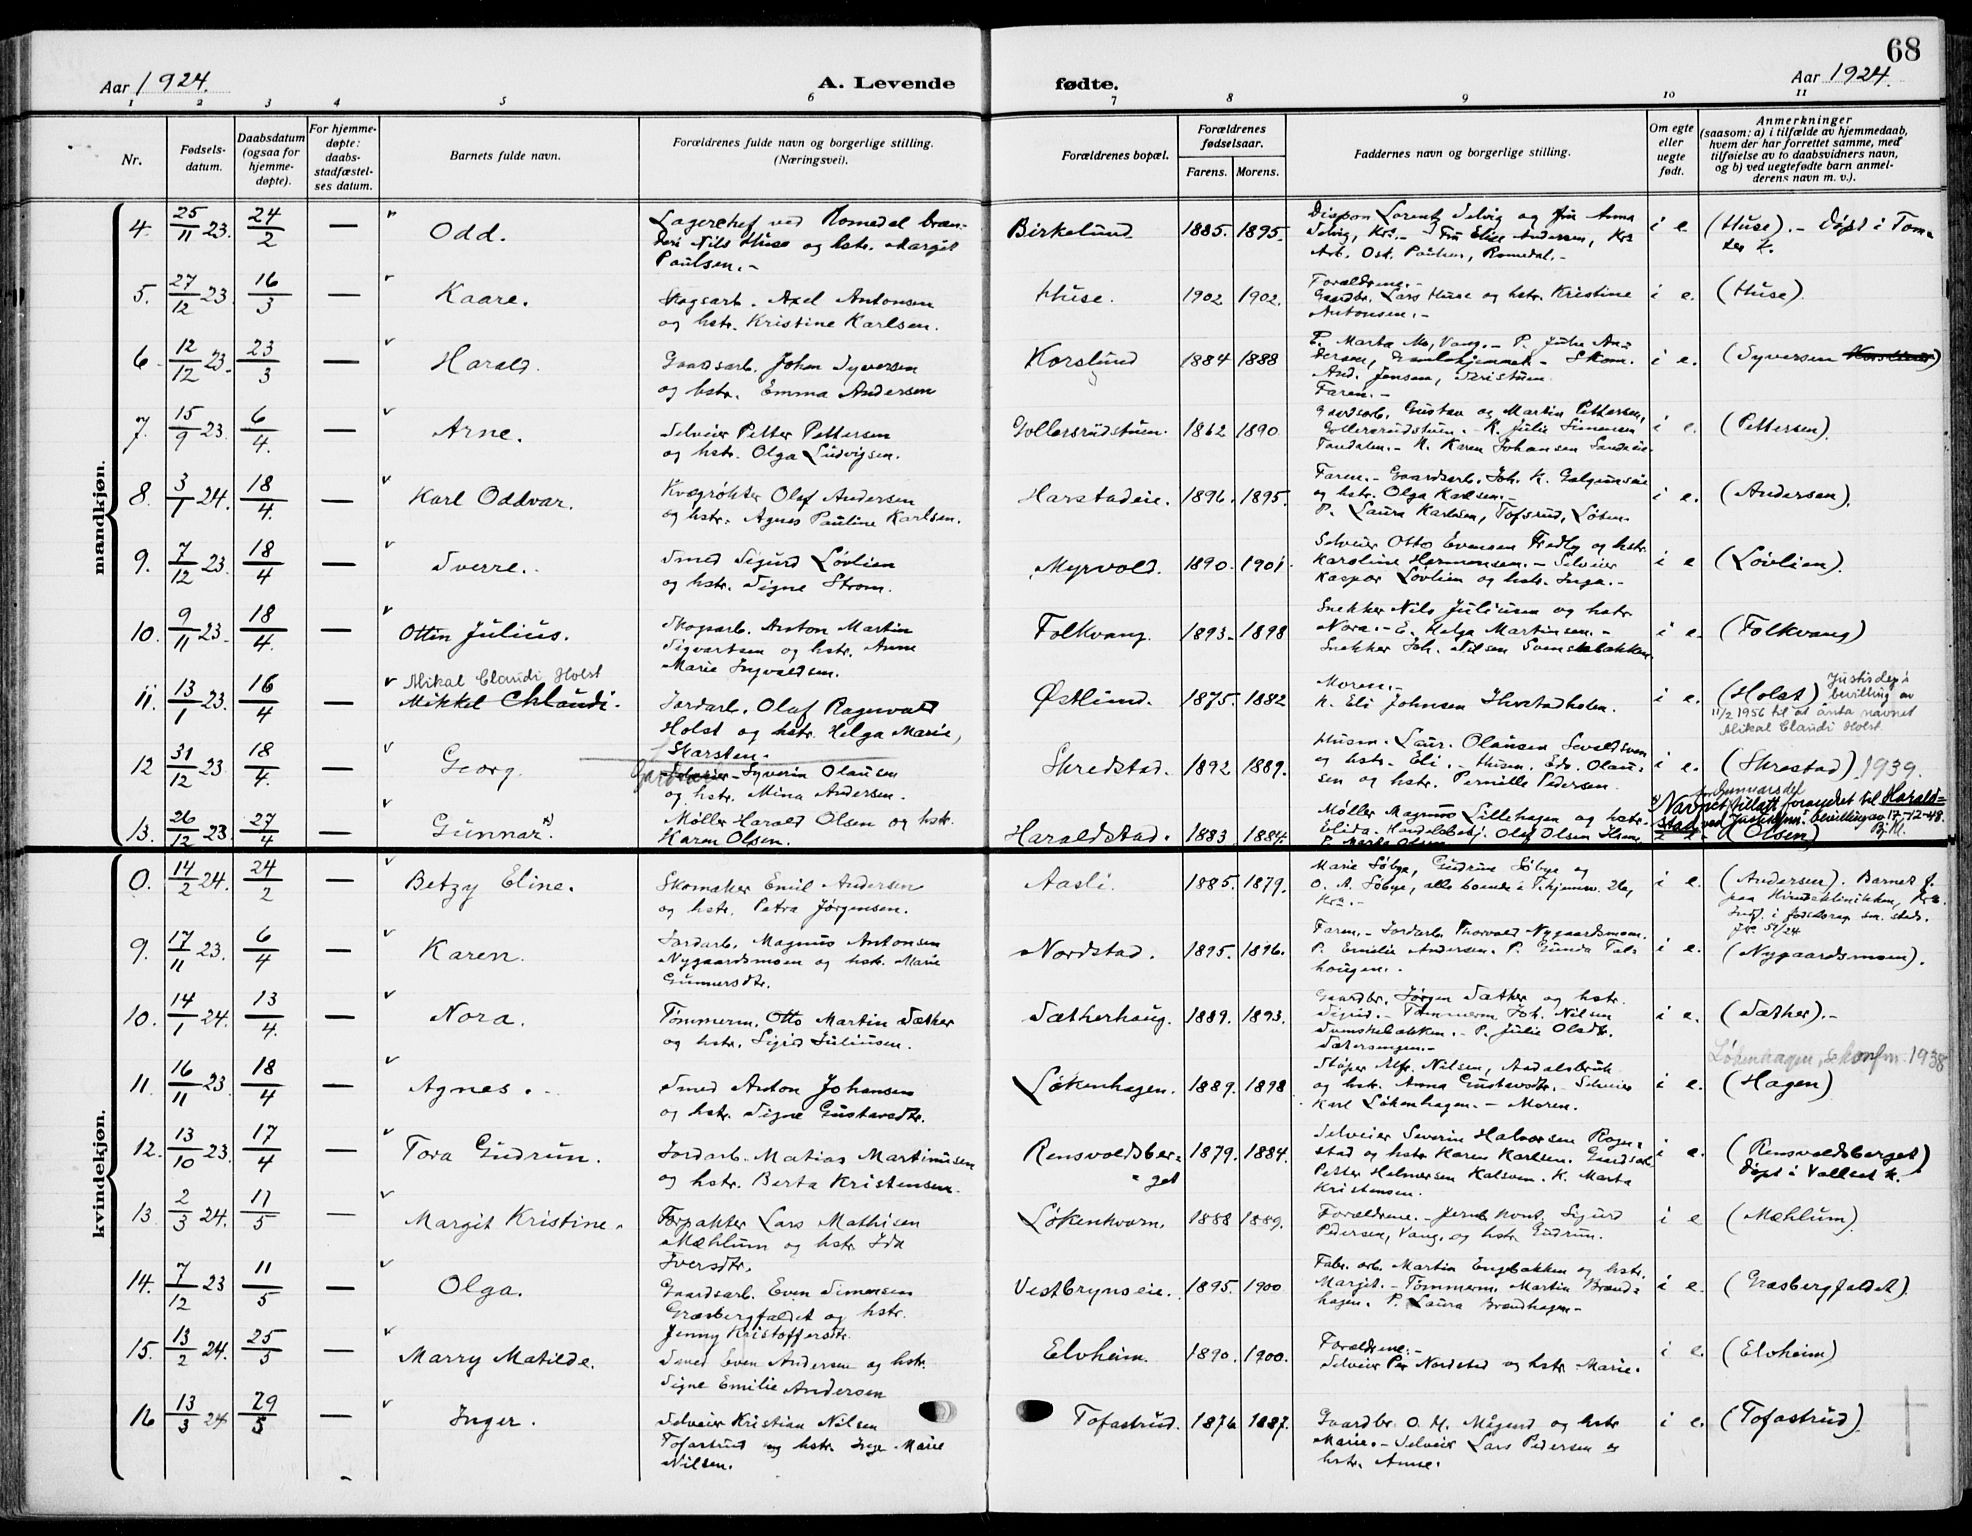 68
Aar 1924.
A. Levende
fødte.
Aar 1924.
1 2 3 4 5 6 7 8 9 10 11
Nr.
Fødsels-
datum.
Daabsdatum
(ogsaa for
hjemme-
døpte).
For hjemme-
døpte:
daabs-
stadfæstel-
ses datum.
Barnets fulde navn.
Forældrenes fulde navn og borgerlige stilling.
(Næringsvei).
Forældrenes bopæl.
Forældrenes
fødselsaar.
Farens. Morens.
Faddernes navn og borgerlige stilling.
Om egte
eller
uegte
født.
Anmerkninger
(saasom: a) i tilfælde av hjemmedaab,
hvem der har forrettet samme, med
tilføielse av to daabsvidners navn,
og b) ved uegtefødte barn anmel-
derens navn m. v.).
mandkjøn.
4. 25/11 23. 24/2 — Odd.
Lagerchef ved Romedal bræn-
deri Nils Huse og hstr. Margit
Paulsen.-
Birkelund 1885. 1895.
Dispon Lorentz Selvig og fru Anna
Selvig, Kra.- Fru Elise Andersen, Kra
Arb. Osk. Paulsen, Romedal.-
i e (Huse).- Døpt i Tom-
ter K.
5. 27/12 23 16/3 — Kaare.
Skogsarb. Axel Antonsen
og hstr. Kristine Karlsen.
Huse. 1902 1902.
Forældrene.-
Gaardbr. Lars Huse og hstr. Kristine
Antonsen.-
i e. (Huse).
6 12/12 23. 23/3 — Harald.
Gaardsarb. Johan Syversen
og hstr. Emma Andersen
Korslund 1884 1888
P. Marta Mo, Vang.- P. Julie An-
dersen, Gamlehjemmet.- Skom.
And. Jensen,
Faren.-
i e. (Syversen Korslund)
7. 15/9 23. 6/4. — Arne.
Selveier Petter Pettersen
og hstr. Olga Ludvigsen.
Gollersrudstuen. 1862 1890
Gaardsarb. Gustav og Martin Pettersen,
Gollersrudstuen.- K. Julie Simensen
Fandalen.- K. Karen Johansen
i e. (Pettersen).
8. 3/1 24. 18/4. — Karl Oddvar.
Kvægrøkter Olaf Andersen
og hstr. Agnes Pauline Karlsen.
Harstadeie. 1896. 1895.
Faren.- Gaardsarb. Joh. K. Galgumseie
og hstr. Olga Karlsen.-
P. Laura Karlsen, Tofsrud, Løten.
i e. (Andersen).
9. 7/12 23. 18/4 — Sverre.
Smed Sigurd Løvlien
og hstr. Signe Strøm.
Myrvold. 1890. 1901.
Selveier Otto Evensen Fredly og hstr.
Karoline Hermansen.- Selveier
Kaspar Løvlien og hstr. Inga.-
i e (Løvlien).
10. 9/11 23. 18/4. — Ottin Julius.
Skogsarb. Anton Martin
Sigvartsen og hstr. Anne
Marie Ingvaldsen.
Folkvang. 1893. 1898
Snekker Nils Juliusen og hstr
Nora.- E. Helga Martinsen.-
Snekker Joh. Nilsen Svenskebakken.
i e. (Folkvang)
Mikal Claudi Holst
11. 13/1 23. 16/4 Mikkel Chlaudi.
Jordarb. Olaf Ragnvald
Holst og hstr. Helga Marie,
Skarsten.-
Østlund. 1875. 1882
Moren.-
K. Eli Johnsen
i e. (Holst) Justisdep's
bevilling av
11/2 1956 til at anta navnet
Mikal Claudi Holst.
12 31/12 23. 18/4. — Georg.
Selveier Syverin Olausen
og hstr. Mina Andersen.
Skredstad. 1892 1889.
Husm. Laur. Olausen
og hstr. Eli.- Husm. Edv. Olau-
sen og hstr. Pernille Pedersen.
i e. (Skrestad) 1939.
13. 26/12 23. 27/4 — Gunnar.x)
Møller Harald Olsen og hstr.
Karen Olsen.
Haraldstad. 1883 1884.
Møller Magnus Lillehagen og hstr.
Elida. Olaf Olsen
x) Navnet tillatt forandret til Harald-
stad ved bevilling av 17-12-48.
i e. (Olsen)
kvindekjøn.
0. 14/2 24. 24/2 — Betzy Eline.
Skomaker Emil Andersen
og hstr. Petra Jørgensen.
Aasli. 1885. 1879.
Marie Søbye, Gudrun Søbye og
O. A. Søbye, alle boende i
Kra.-
i e. (Andersen). Barnet f.
paa Kvindeklinikken, Kra.
Indf. i fødselsreg. sm. steds.
9. 17/11 23. 6/4 — Karen.
Jordarb. Magnus Antonsen
Nygaardsmoen og hstr. Marie
Gunnarsdtr.
Nordstad. 1895. 1896.
Faren.- Jordarb. Thorvald Nygaardsmoen.
P. Emilie Andersen. P. Gunda Tal-
haugen.-
i e. (Nygaardsmoen).
10. 14/1 24. 13/4. — Nora.
Tømmerm. Otto Martin Sæther
og hstr. Sigrid Juliusen.
Sætherhaug. 1889. 1893.
Gaardbr. Jørgen Sæther og hstr.
Sigrid.- Tømmerm. Joh. Nilsen
Svenskebakken.- P. Julie Olsdtr.
Sæterengen.-
i e. (Sæther).-
Løkenhagen, konfm. 1938
11. 16/11 23 18/4 — Agnes.-
Smed Anton Johansen
og hstr. Signe Gustavsdtr.
Løkenhagen. 1889. 1898
Støper Alf. Nilsen, Aadalsbruk
og hstr. Anna Gustavsdtr.- Selveier
Karl Løkenhagen.- Moren.
i e. (Hagen)
12. 13/10 23. 17/4 — Tora Gudrun.
Jordarb. Matias Martinusen
og hstr. Berta Kristensen.
Rensvoldsber-
get 1879. 1884.
Selveier Severin Halvorsen Rogn-
stad og hstr Karen Karlsen. Gaardsarb.
Petter Halvorsen Kalsveen. K. Marta
Kristensen.
i e. (Rensvoldsberget)
døpt i Vallset K.
13. 2/3 24. 11/5 — Margit Kristine.
Forpakter Lars Mathisen
Mæhlum og hstr. Ida
Iversdtr.
Løkenkvern. 1888 1889.
Forældrene.- Sigurd
Pedersen, Vang. og hstr. Gudrun.
i e (Mæhlum).
14. 7/12 23 11/5 — Olga.
Gaardsarb. Even Simensen
Græsbergfaldet og hstr.
Jenny Kristoffersdtr.
Vestbrynseie. 1895. 1900
Fabr. arb. Martin Engebakken og hstr.
Margit.- Tømmerm. Martin Brænd-
hagen. P. Laura Brændhagen-
i e. (Græsbergfaldet).
15. 13/2 24. 25/5 — Marry Matilde.
Smed Even Andersen og hstr.
Signe Emilie Andersen
Elvheim. 1890. 1900.
Forældrene.-
Selveier Per Nordstad og hstr. Marie.
i e. (Elvheim)
16 13/3 24 29/5 — Inger.
Selveier Kristian Nilsen
Tofastrud og hstr. Inga Marie
Nilsen.
Tofastrud. 1876 1887.
Gaardbr. O. H. og hstr
Marie.- Selveier Lars Pedersen og
hstr. Anne.
i e. (Tofastrud).